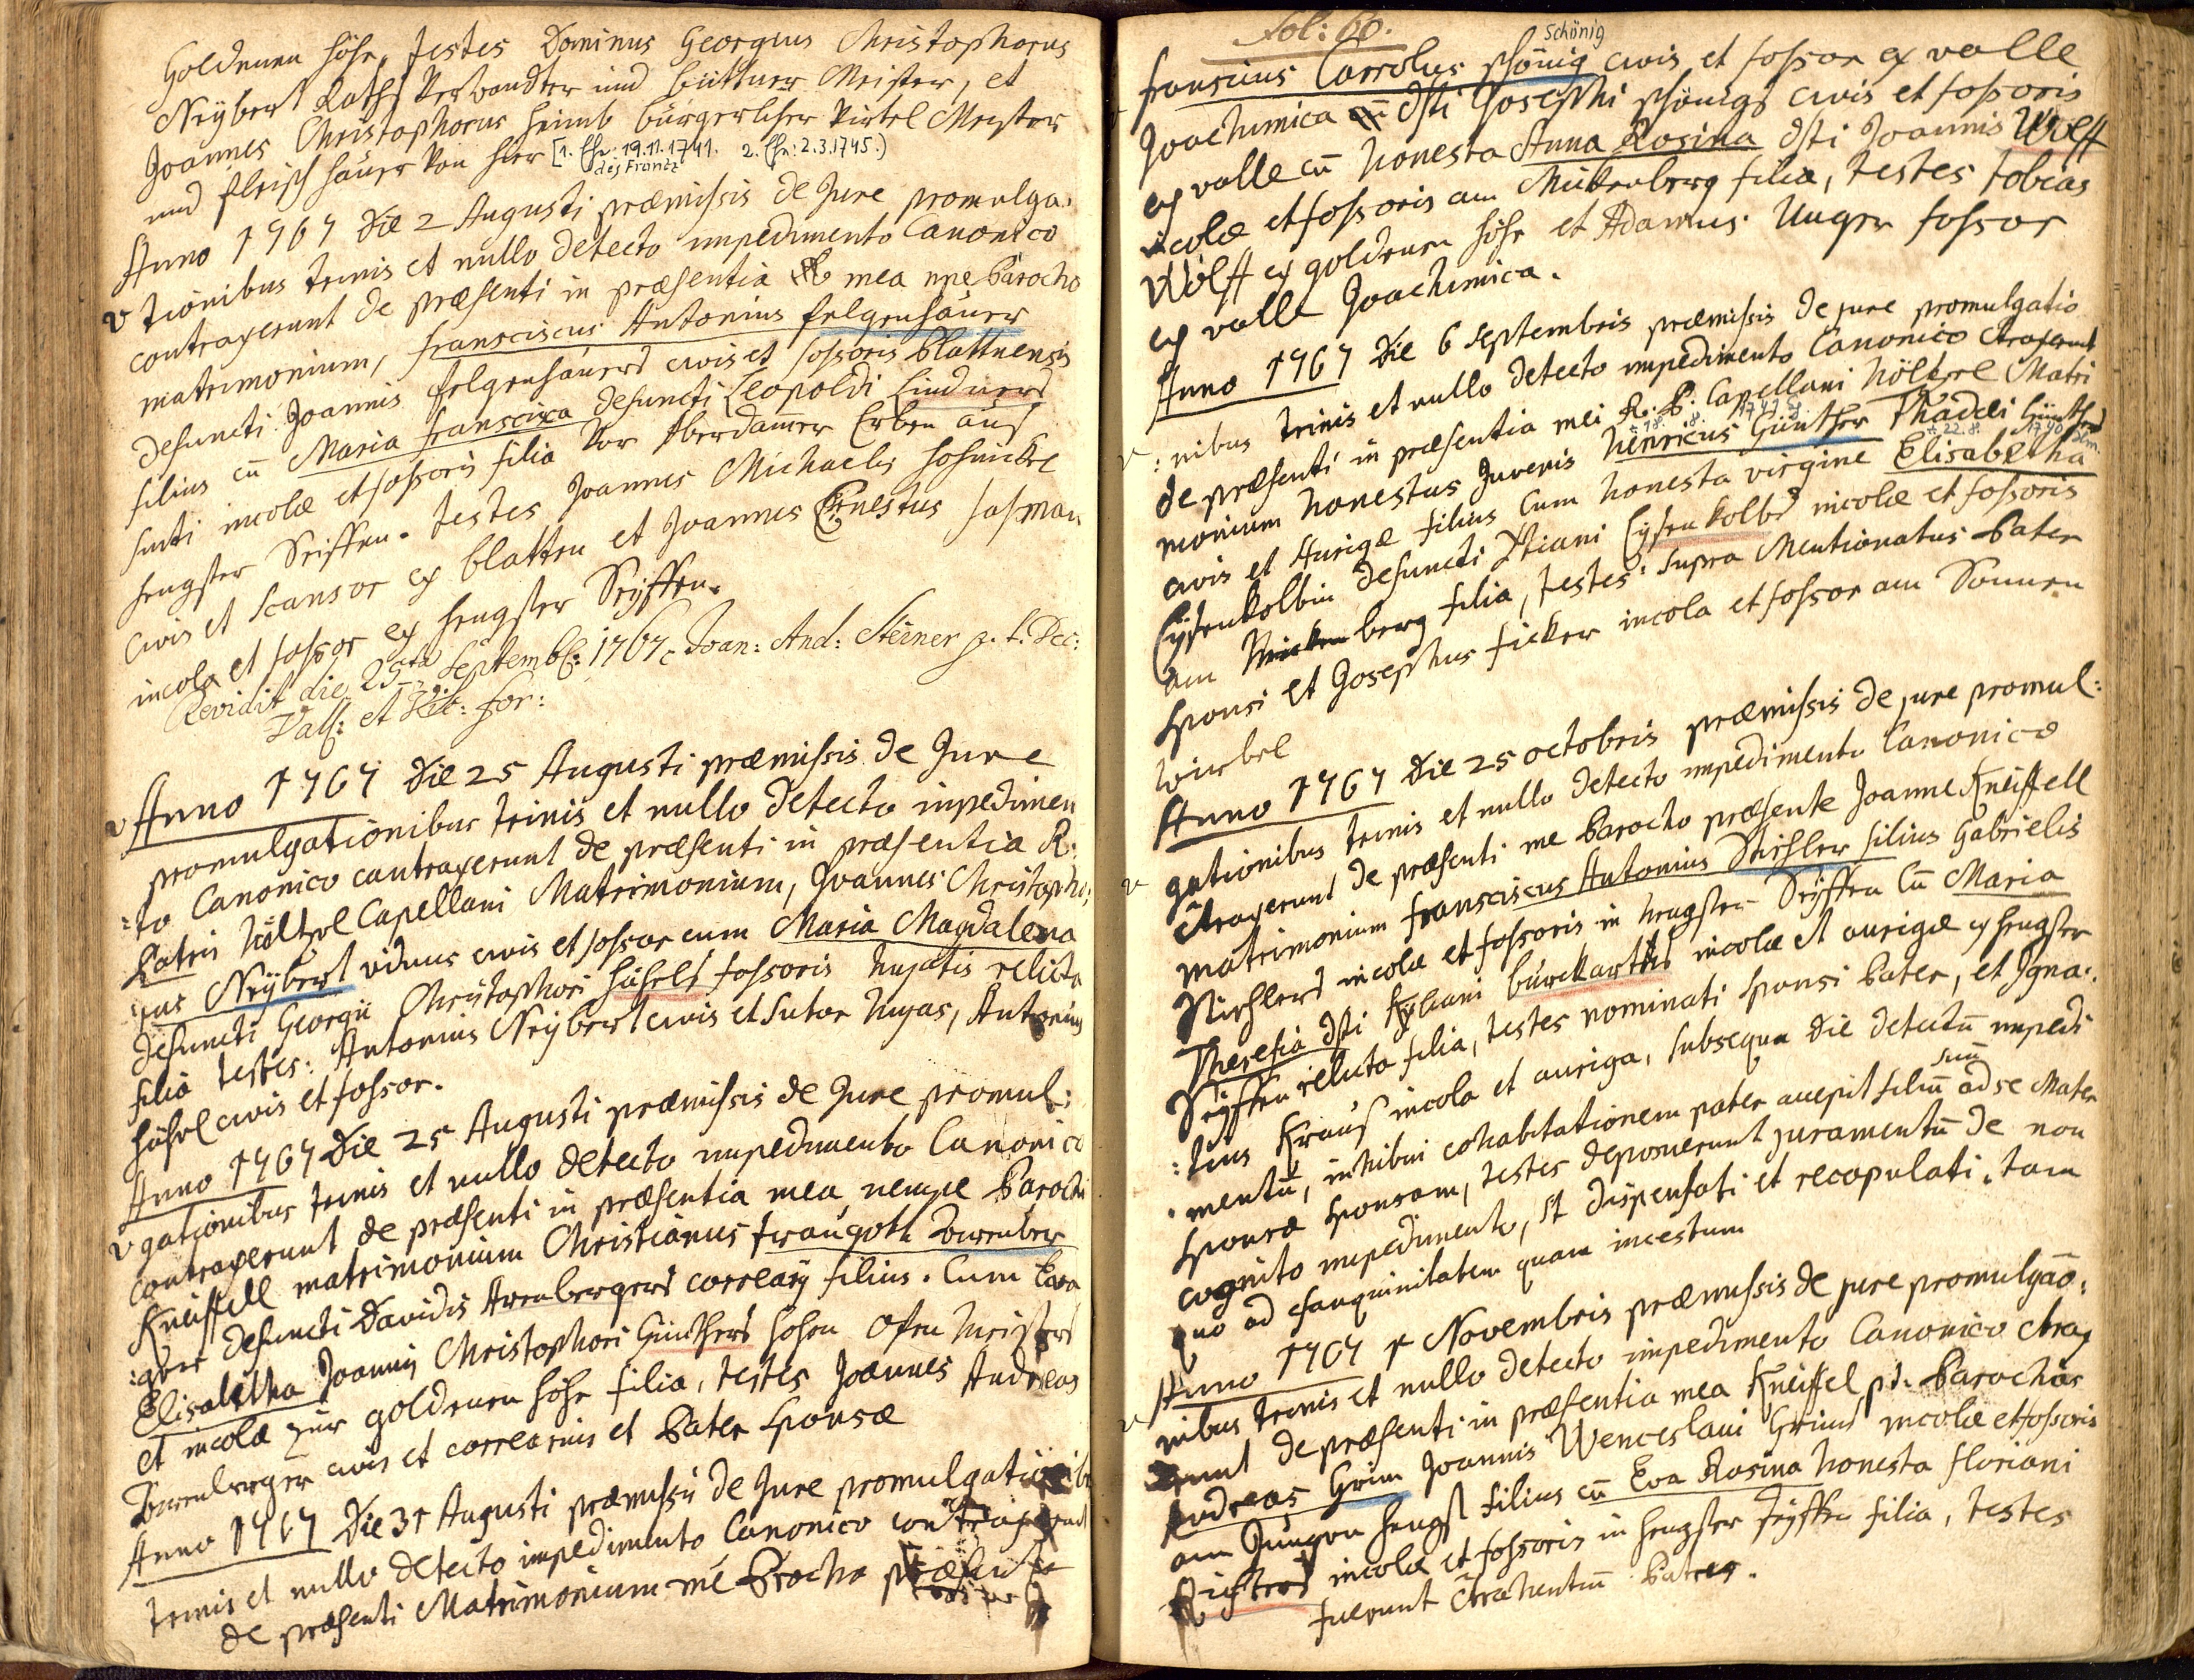 Goldenen Höhe, testes Dominus Georgius Christophorus
Neÿbert Raths Verwandter und Büttner Meister, et
Joannes Christophorus Heimb bürgerlicher Virtel Meister
und Fleisch häuer von hier [1. Ehe: 19.11.1741. 2. Ehe: 2.3.1745.)
des Frantz
Anno 1767 Die 2 Augusti præmissis de Jure promulga:
v tionibus trinis et nullo detecto impedimento Canonico
contraxerunt de præsenti in præsentia mea npe Parocho
matrimonium, Fransciscus Antonius Felgenhäuer
defuncti Joannis Felgenhäuers civis et fossoris Plattnensis
filius cū Maria Franscisca defuncti Leopoldi Lindners
incolæ et fossoris filia Vor Aberdamer Erben aus
Hengster Seiffen. testes Joannes Michaelis
civis et scansor ex Platten et Joannes Ernestus Hasman
incola et fossor ex Hengster Seÿffen.
Revidit die 25ta Septemb: 1767. Joan: And: Steiner p. t. Dec:
Vall: et Vic: for:
v Anno 1767 Die 25 Augusti præmissis de Jure
promulgationibus trinis et nullo detecto inpedimen
:to Canonico contraxerunt de præsenti in præsentia R:
Patris Höltzel Capellani Matrimonium, Joannes Christopho:
:rus Neÿbert viduus civis et fossor cum Maria Magdalena
defuncti Georgii Christophori Hähels fossoris hujatis relicta
filia testes: Antonius Neÿbert civis et sutor hujas, Antonius
Hähel civis et fossor.
Anno 1767 Die 25 Augusti præmissis de Jure promul:
v gationibus trinis et nullo detecto impedimento Canonico
contraxerunt de præsenti in præsentia mea nempe Parochi
Kneiffell matrimonium Christianus Traugott Arenber
:ger defuncti Davidis Arenbergers correarÿ filius. Cum Eva
Elisabetha Joannis Christophori Günthers hohen Ofen Meisters
et incolæ zur goldenen Höhe filia, testes Joannes Andreas
Arenberger civis et correarius et Pater Sponsæ
Anno 1767 Die 31 Augusti præmissis de Jure promulgationib
trinis et nullo detecto impedimento Canonico contraxerunt
de præsenti Matrimonium me Parocho præsente
Fol: 60.
Schönig
Franscius Carrolus Schönig civis et fossor ex valle
Joachimica dfti Josephi Schönigs civis et fossoris
ex valle cū honesta Anna Rosina dfti Joannis Wolff
incolæ et fossoris am Mückenberg filia, testes tobias
Wolff ex goldenen höhe et Adamus Unger fossor
ex valle Joachimica.
Anno 1767 Die 6 Septembris præmissis de jure promulgatio
v :nibus trinis et nullo detecto impedimento Canonico ctraxerunt
de præsenti in præsentia mei R. P. Capellani Höltzel Matri
monium honestus Juvenis Henricus Günther Thadæi Günthers
civis et Aurigæ filius cum honesta virgine Elisabetha
Eÿsenkolbin defuncti Xtiani Eÿsenkolbs incolæ et fossoris
am Mückenberg filia, testes supra Mentionatus Pater
Sponsi et Josephus Ficker incola et fossor am Sonnen
wirbel
Anno 1767 Die 25 octobris præmissis de jure promul:
v gationibus trinis et nullo detecto impedimento Canonico
ctraxerunt de præsenti me Parocho præsente Joanne Kneiffell
matrimonium Fransciscus Antonius Stichler filius Gabrielis
Stichlers incolæ et fossoris in hengster Seÿffen Cū Maria
Theresia dfti Kyliani Burckarths incolæ et aurigæ ex hengster
Seÿffen relicta filia, testes nominati Sponsi Pater, et Igna:
:tius Kraus incola et auriga, subsequa die detectū impedi
:mentū, inhibui cohabitationem pater accepit filiū suū ad se Mater
Sponsæ Sponsam, testes deposuerunt juramentū de non
cognito impedimento, st dispensati et recopulati, tam
quo ad csanguinitatem quam incestum
Anno 1767 1 Novembris præmissis de jure promulgāo:
v nibus trinis et nullo detecto impedimento Canonico ctrax
erunt de præsenti in præsentia mea Kneiffel pt. Parochus
Andreas Grim Joannis Wenceslaui Grims incolæ et fossoris
am Jungen Hengst filius cū Eva Rosina honesta Floriani
Richters incolæ et fossoris in hengster Seÿffen filia, testes
fuerunt ctrahentiū Patres.